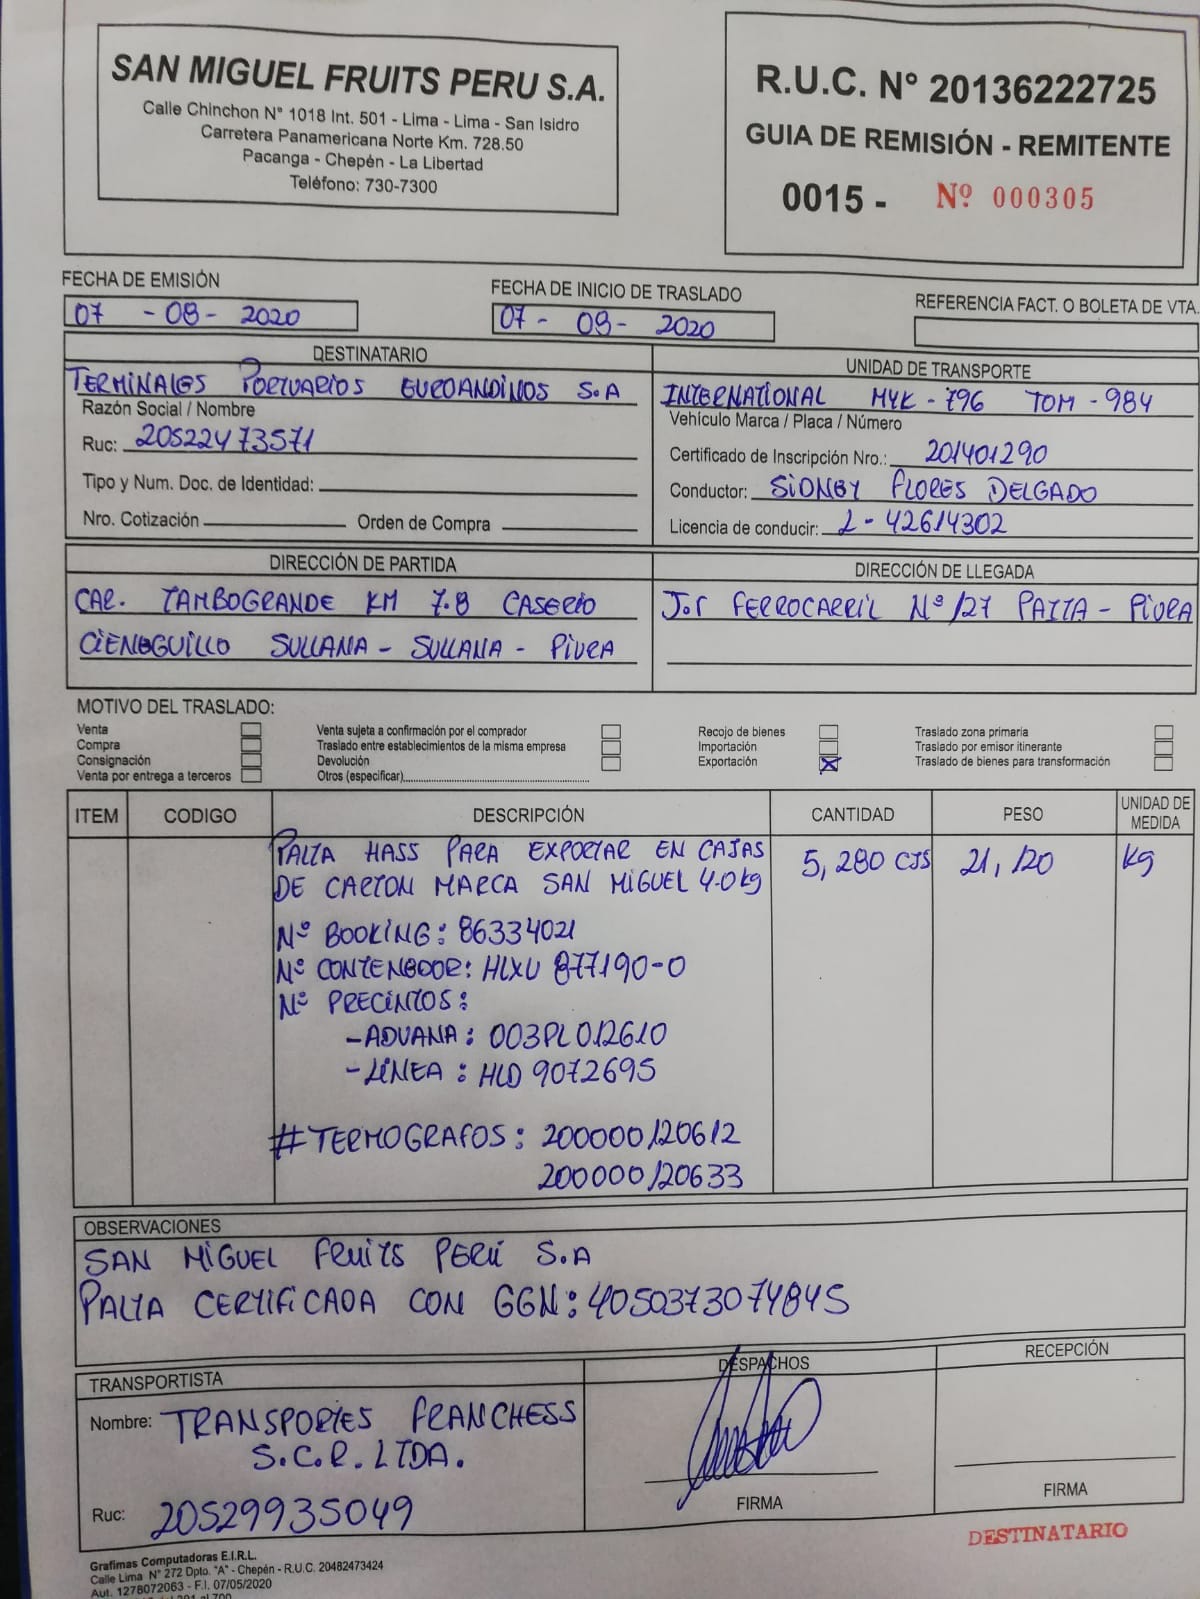 SAN MIGUEL FRUITS PERU S.A.
Calle Chinchon N° 1018 Int. 501 - Lima - Lima - San Isidro
Carretera Panamericana Norte Km. 728.50
Pacanga - Chepén - La Libertad
Teléfono: 730-7300
R.U.C. N° 20136222725
GUIA DE REMISIÓN - REMITENTE
0015 - Nº 000305
FECHA DE EMISIÓN
07 - 08 - 2020
FECHA DE INICIO DE TRASLADO
07 - 08 - 2020
REFERENCIA FACT. O BOLETA DE VTA.
DESTINATARIO
TERMINALES PORTUARIOS EUROANDINOS S.A
Razón Social / Nombre
Ruc: 20522473571
Tipo y Num. Doc. de Identidad:
Nro. Cotización Orden de Compra
UNIDAD DE TRANSPORTE
INTERNATIONAL M4K - 796 TOM - 984
Vehículo Marca / Placa / Número
Certificado de Inscripción Nro.: 201401290
Conductor: SIDNEY FLORES DELGADO
Licencia de conducir: L - 42614302
DIRECCIÓN DE PARTIDA
CAR. TAMBOGRANDE KM 7.8 CASERIO
CIENEGUILLO SULLANA - SULLANA - PIURA
DIRECCIÓN DE LLEGADA
Jr FERROCARRIL Nº 127 PAITA - PIURA
MOTIVO DEL TRASLADO:
Venta
Compra
Consignación
Venta por entrega a terceros
Venta sujeta a confirmación por el comprador
Traslado entre establecimientos de la misma empresa
Devolución
Otros (especificar)
Recojo de bienes
Importación
Exportación X
Traslado zona primaria
Traslado por emisor itinerante
Traslado de bienes para transformación
ITEM CODIGO DESCRIPCIÓN CANTIDAD PESO UNIDAD DE MEDIDA
PALTA HASS PARA EXPORTAR EN CAJAS 5,280 CJS 21,120 Kg
DE CARTON MARCA SAN MIGUEL 4.0 kg
Nº BOOKING: 86334021
Nº CONTENEDOR: HLXU 877190-0
Nº PRECINTOS:
- ADUANA: 003PL012610
- LÍNEA: HLD 9072695
# TERMOGRAFOS: 200000120612
200000120633
OBSERVACIONES
SAN MIGUEL FRUITS PERÚ S.A
PALTA CERTIFICADA CON GGN: 4050373074845
TRANSPORTISTA
Nombre: TRANSPORTES FRANCHESS
S.C.R. LTDA.
Ruc: 20529935049
DESPACHOS
FIRMA
RECEPCIÓN
FIRMA
DESTINATARIO
Grafimas Computadoras E.I.R.L.
Calle Lima N° 272 Dpto. "A" - Chepén - R.U.C. 20482473424
Aut. 1278072063 - F.I. 07/05/2020